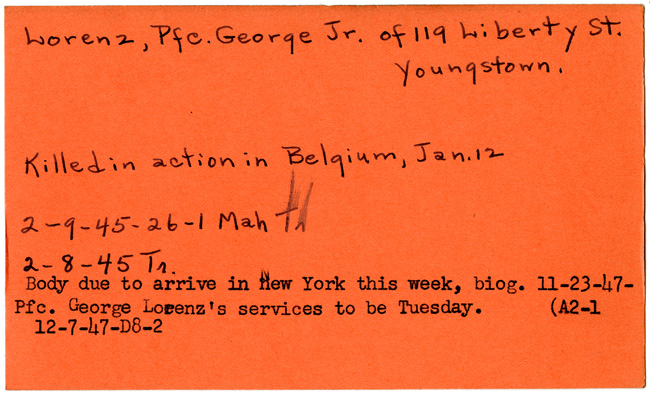 Lorenz, Pfc. George Jr. of 119 Liberty St.
Youngstown.
Killed in action in Belgium, Jan. 12
2-9-45-26-1 Mah Tr
2-8-45 Tr.
Body due to arrive in New York this week, biog. 11-23-47-
Pfc. George Lorenz's services to be Tuesday. (A2-1
12-7-47-D8-2